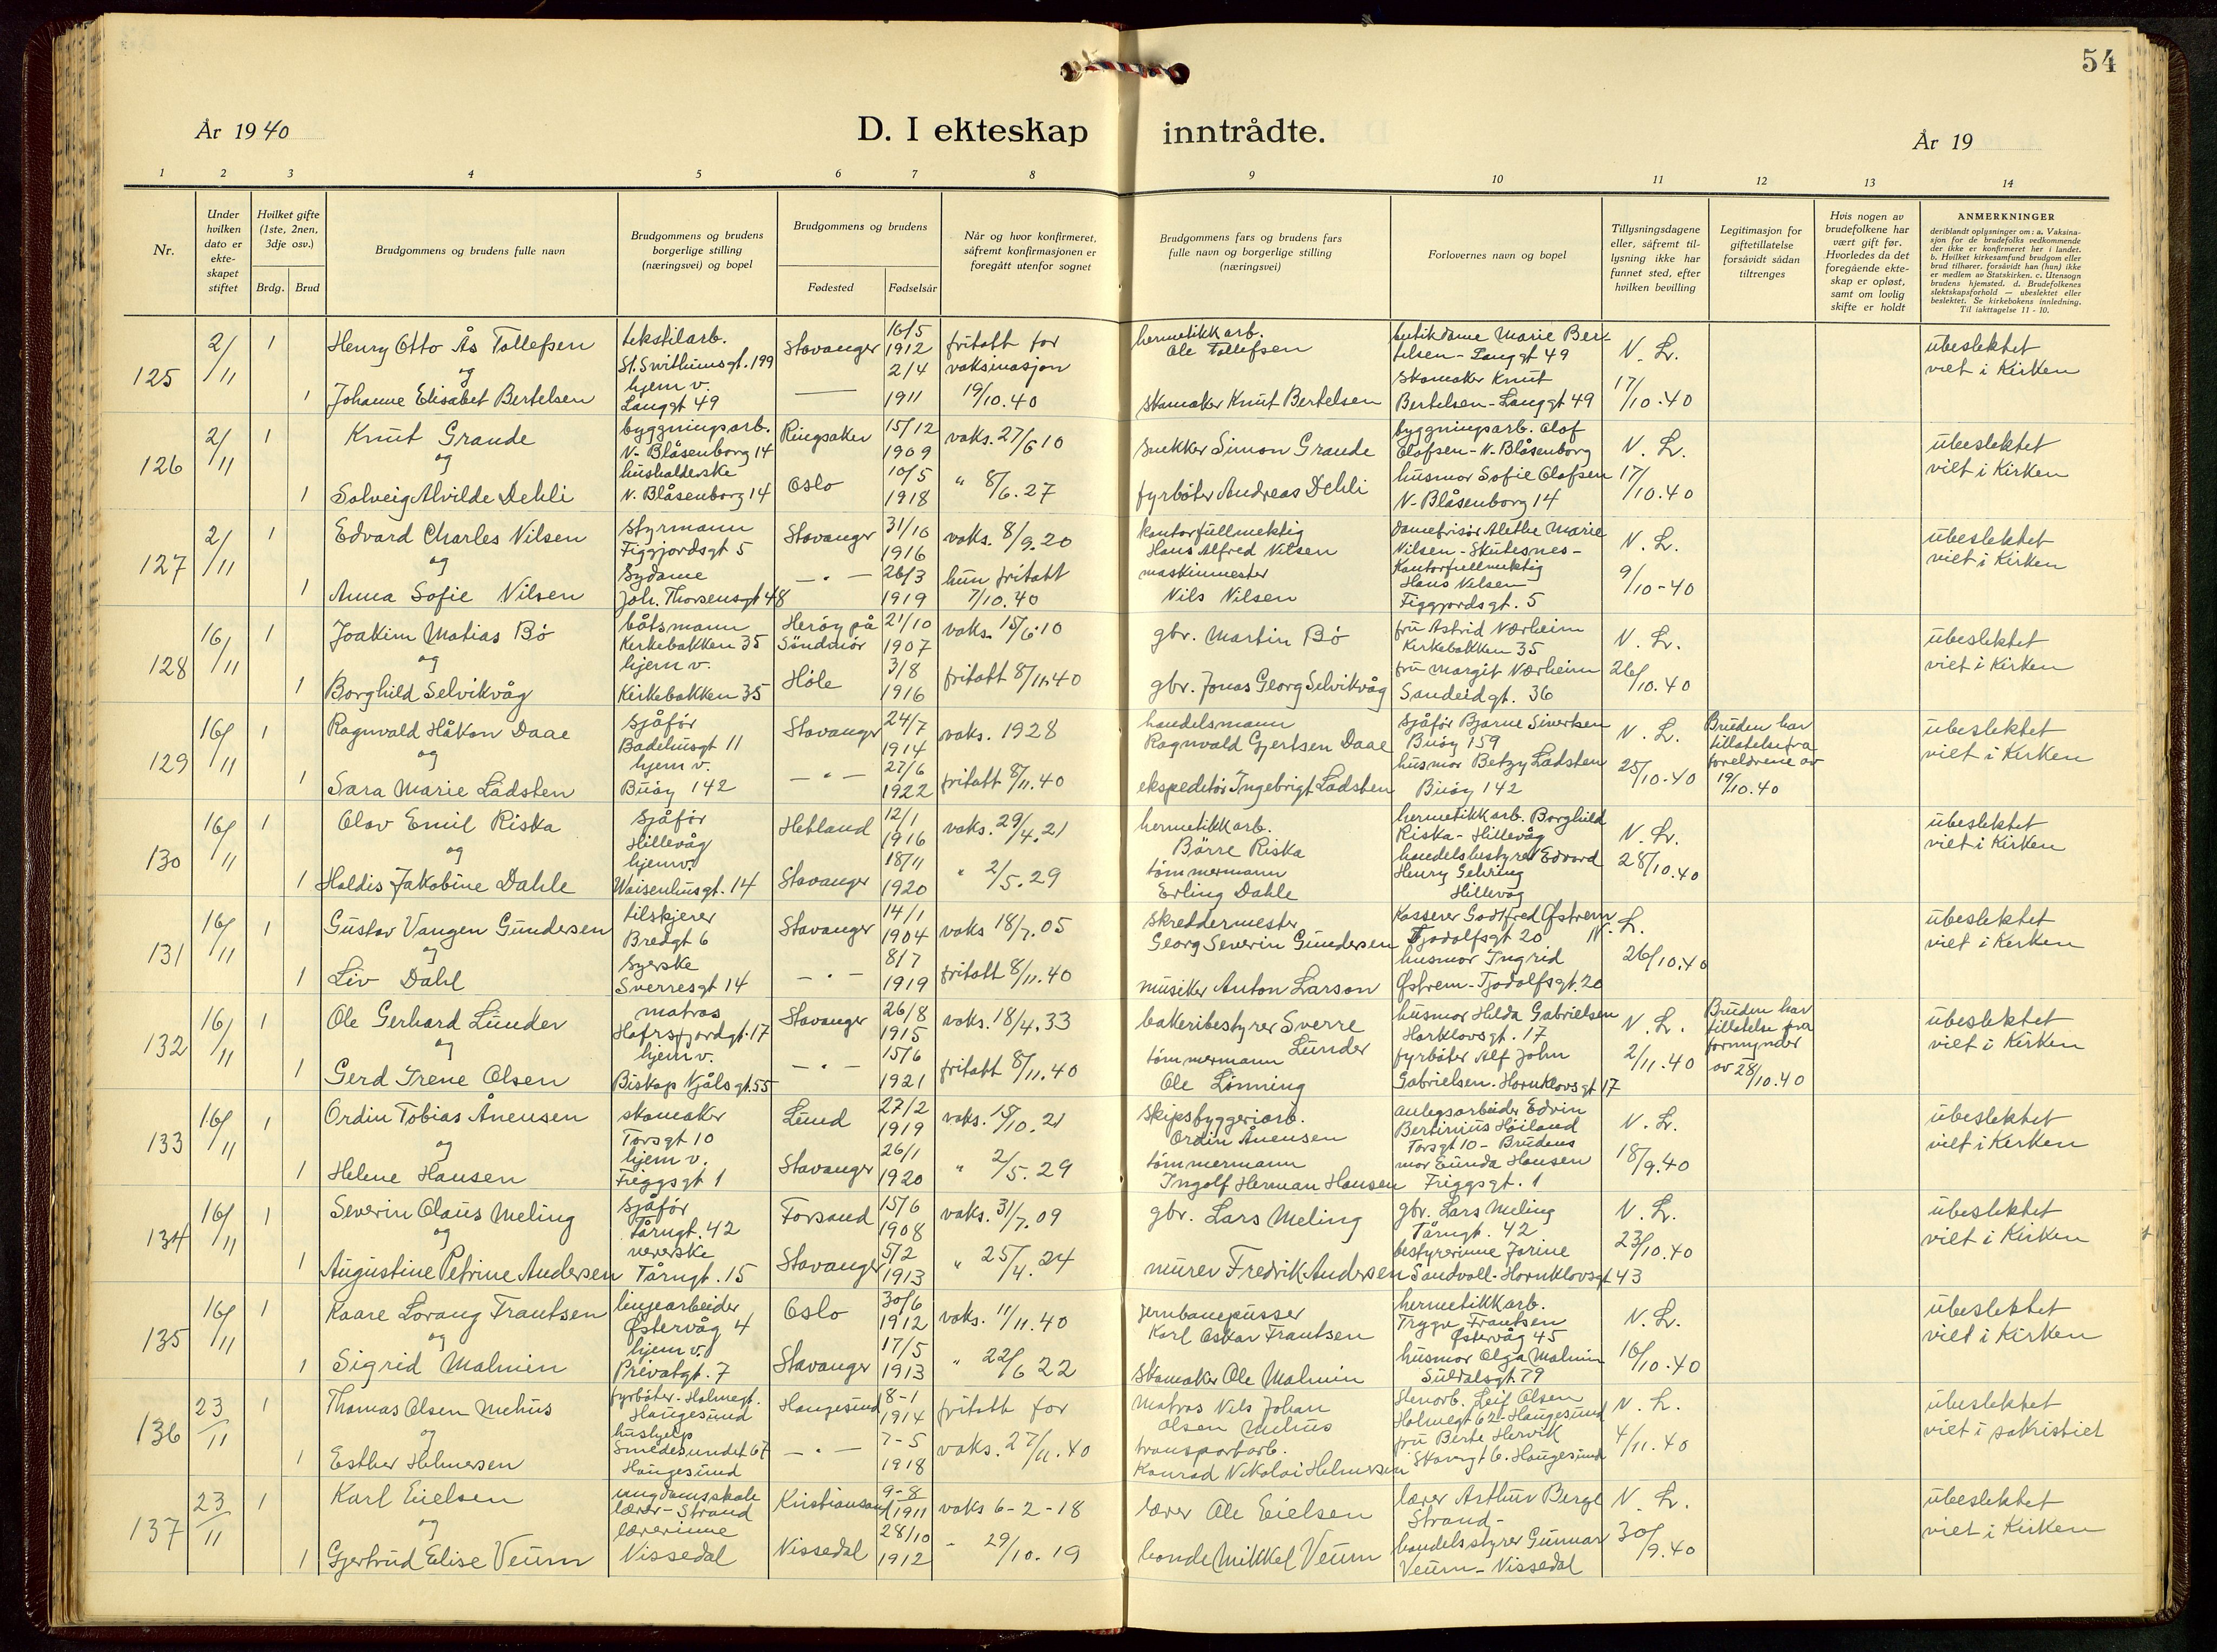 54
År 1940
D. I ekteskap inntrådte.
År 19
1 2 3 4 5 6 7 8 9 10 11 12 13 14
Nr.
Under hvilken dato er ekte-skapet stiftet
Hvilket gifte (1ste, 2nen, 3dje osv.)
Brdg. Brud
Brudgommens og brudens fulle navn
Brudgommens og brudens borgerlige stilling (næringsvei) og bopel
Brudgommens og brudens
Fødested
Fødselsår
Når og hvor konfirmeret, såfremt konfirmasjonen er foregått utenfor sognet
Brudgommens fars og brudens fars fulle navn og borgerlige stilling (næringsvei)
Forlovernes navn og bopel
Tillysningsdagene eller, såfremt til-lysning ikke har funnet sted, efter hvilken bevilling
Legitimasjon for giftetillatelse forsåvidt sådan tiltrenges
Hvis nogen av brudefolkene har vært gift før. Hvorledes da det foregående ekte-skap er opløst, samt om lovlig skifte er holdt
ANMERKNINGER
deriblandt oplysninger om: a. Vaksina-sjon for de brudefolks vedkommende der ikke er konfirmeret her i landet. b. Hvilket kirkesamfund brudgom eller brud tilhører, forsåvidt han (hun) ikke er medlem av Statskirken. c. Utensogn brudens hjemsted. d. Brudefolkenes slektskapsforhold — ubeslektet eller beslektet. Se kirkebokens innledning. Til iakttagelse 11 - 10.
125 2/11 1 Henry Otto Ås Tollefsen
tekstilarb. St. Swithunsgt. 199
Stavanger 16/5 1912
fritatt for vaksinasjon 19/10.40
hermetikkarb. Ole Tollefsen
butikdame Marie Ber-telsen - Langgt 49
N. L. 17/10.40
ubeslektet viet i Kirken
og
1 Johanne Elisabet Bertelsen
hjem v. Langgt 49
— 2/4 1911
skomaker Knut Bertelsen
skomaker Knut Bertelsen - Langgt 49
126 2/11 1 Knut Grande
byggningsarb. N. Blåsenborg 14
Ringsaker 15/12 1909
vaks. 27/6 10
snekker Simon Grande
byggningsarb. Olof Olofsen - N. Blåsenborg
N. L. 17/10.40
ubeslektet viet i Kirken
og
1 Solveig Alvilde Dehli
husholderske N. Blåsenborg 14
Oslo 10/5 1918
" 8/6.27
fyrbøter Andreas Dehli
husmor Sofie Olofsen N. Blåsenborg 14
127 2/11 1 Edvard Charles Nilsen
styrmann Figgjordsgt 5
Stavanger 31/10 1916
vaks. 8/9.20
kontorfullmektig Hans Alfred Nilsen
Damefrisør Alethe Marie Nilsen - Skutesnes -
N. L. 9/10-40
ubeslektet viet i Kirken
og
1 Anna Sofie Nilsen
Sydame Joh. Thorsensgt 48
— " — 26/3 1919
hun fritatt 7/10.40
maskinmester Nils Nilsen
Kontorfullmektig Hans Nilsen Figgjordsgt. 5
128 16/11 1 Joakim Matias Bø
båtsmann Kirkebakken 35
Herøy på Søndmør 21/10 1907
vaks. 15/6.10
gbr. Martin Bø
fru Astrid Nærheim Kirkebakken 35
N. L. 26/10.40
ubeslektet viet i Kirken
og
1 Borghild Selvikvåg
hjem v. Kirkebakken 35
Høle 3/8 1916
fritatt 8/11.40
gbr. Jonas Georg Selvikvåg
fru Margit Nærheim Sandeidgt. 36
129 16/11 1 Ragnvald Håkon Daae
sjåfør Badehusgt 11
Stavanger 24/7 1914
vaks. 1928
handelsmann Ragnvald Gjertsen Daae
sjåfør Bjarne Sivertsen Buøy 159
N. L. 25/10.40
Bruden har tillatelse fra foreldrene av 19/10.40
ubeslektet viet i Kirken
og
1 Sara Marie Ladsten
hjem v. Buøy 142
— " — 27/6 1922
fritatt 8/11.40
ekspeditør Ingebrigt Ladsten
husmor Betzy Ladsten Buøy 142
130 16/11 1 Olav Emil Riska
sjåfør Hillevåg
Hetland 12/1 1916
vaks. 29/4.21
hermetikkarb. Børre Riska
hermetikkarb. Borghild Riska - Hillevåg
N. L. 28/10.40
ubeslektet viet i Kirken
og
1 Haldis Jakobine Dahle
hjem v. Waisenhusgt. 14
Stavanger 18/11 1920
" 2/5.29
tømmermann Erling Dahle
handelsbestyrer Edvard Henry Gehring Hillevåg
131 16/11 1 Gustav Vangen Gundersen
tilskjerer Bredgt 6
Stavanger 14/1 1904
vaks 18/7.05
skreddermester Georg Severin Gundersen
Kasserer Godtfred Østrem Tjodolfsgt 20
N. L. 26/10.40
ubeslektet viet i Kirken
og
1 Liv Dahl
syerske Sverresgt 14
— " — 8/7 1919
fritatt 8/11.40
musiker Anton Larson
husmor Ingrid Østrem - Tjodolfsgt. 20
132 16/11 1 Ole Gerhard Lunder
matros Hafrsfjordgt. 17
Stavanger 26/8 1915
vaks. 18/4.33
bakeribestyrer Sverre Lunder
husmor Hilda Gabrielsen Harklovsgt. 17
N. L. 2/11.40
Bruden har tillatelse fra formynder av 28/10.40
ubeslektet viet i Kirken
og
1 Gerd Irene Olsen
hjem v. Biskop Njåls gt. 55
— " — 15/6 1921
fritatt 8/11.40
tømmermann Ole Lønning
fyrbøter Alf John Gabrielsen. Hornklovsgt 17
133 16/11 1 Ordin Tobias Ånensen
skomaker Torsgt 10
Lund 27/2 1919
vaks. 15/10.21
skipsbyggeriarb. Ordin Ånensen
anlegsarbeider Edvin Bertinius Høiland Torsgt 10 -
N. L. 18/9.40
ubeslektet viet i Kirken
og
1 Helene Hansen
hjem v. Friggsgt 1
Stavanger 26/1 1920
" 2/5.29
tømmermann Ingolf Herman Hansen
Brudens mor Hansen Friggsgt. 1
134 16/11 1 Severin Olaus Meling
sjåfør Tårngt. 42
Forsand 15/6 1908
vaks. 31/7.09
gbr. Lars Meling
gbr. Lars Meling Tårngt. 42
N. L. 23/10.40
ubeslektet viet i Kirken
og
1 Augustine Petrine Andersen
veverske Tårngt. 15
Stavanger 5/2 1913
" 25/4.24
murer Fredrik Andersen
bestyrerinne Jorine Sandvoll. Hornklovsgt 43
135 16/11 1 Kaare Lorang Frantsen
linjearbeider Østervåg 4
Oslo 30/6 1912
vaks. 11/11.40
jernbanepusser Karl Oskar Frantsen
hermetikkarb. Trygve Frantsen Østervåg 45
N. L. 16/10.40
ubeslektet viet i Kirken
og
1 Sigrid Malmin
hjem v. Privatgt. 7
Stavanger 17/5 1913
" 22/6 22
Skomaker Ole Malmin
husmor Olga Malmin Suldalsgt. 79
136 23/11 1 Thomas Olsen Mehus
fyrbøter - Holmegt. Haugesund
Haugesund 8-1 1914
fritatt for vaks. 27/11.40
Matros Nils Johan Olsen Mehus
Leif Olsen Holmegt 62 - Haugesund
N. L. 4/11.40
ubeslektet viet i sakristiet
og
1 Esther Helmersen
hushjelp Smedesundet 67 Haugesund
— " — 7-5 1918
transportarb. Konrad Nikolai Helmersen
fru Berte Hervik Skaregt 6. Haugesund
137 23/11 1 Karl Eielsen
ungdomsskole lærer - Strand
Kristiansand 9-8 1911
vaks 6-2-18
lærer Ole Eielsen
lærer Arthur Berge Strand -
N. L. 30/9.40
ubeslektet viet i Kirken
og
1 Gjertrud Elise Veum
lærerinne Nissedal
Nissedal 28/10 1912
" 29/10.19
bonde Mikkel Veum
handelsstyrer Gunnar Veum - Nissedal